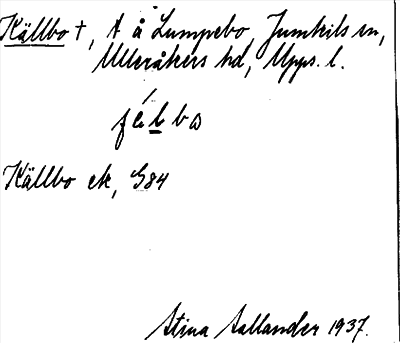 Källbo †, t å Lumpebo, Jumkils sn,
Ulleråkers hd, Upps. l.
Källbo ek, G84
Stina Aallander 1937.